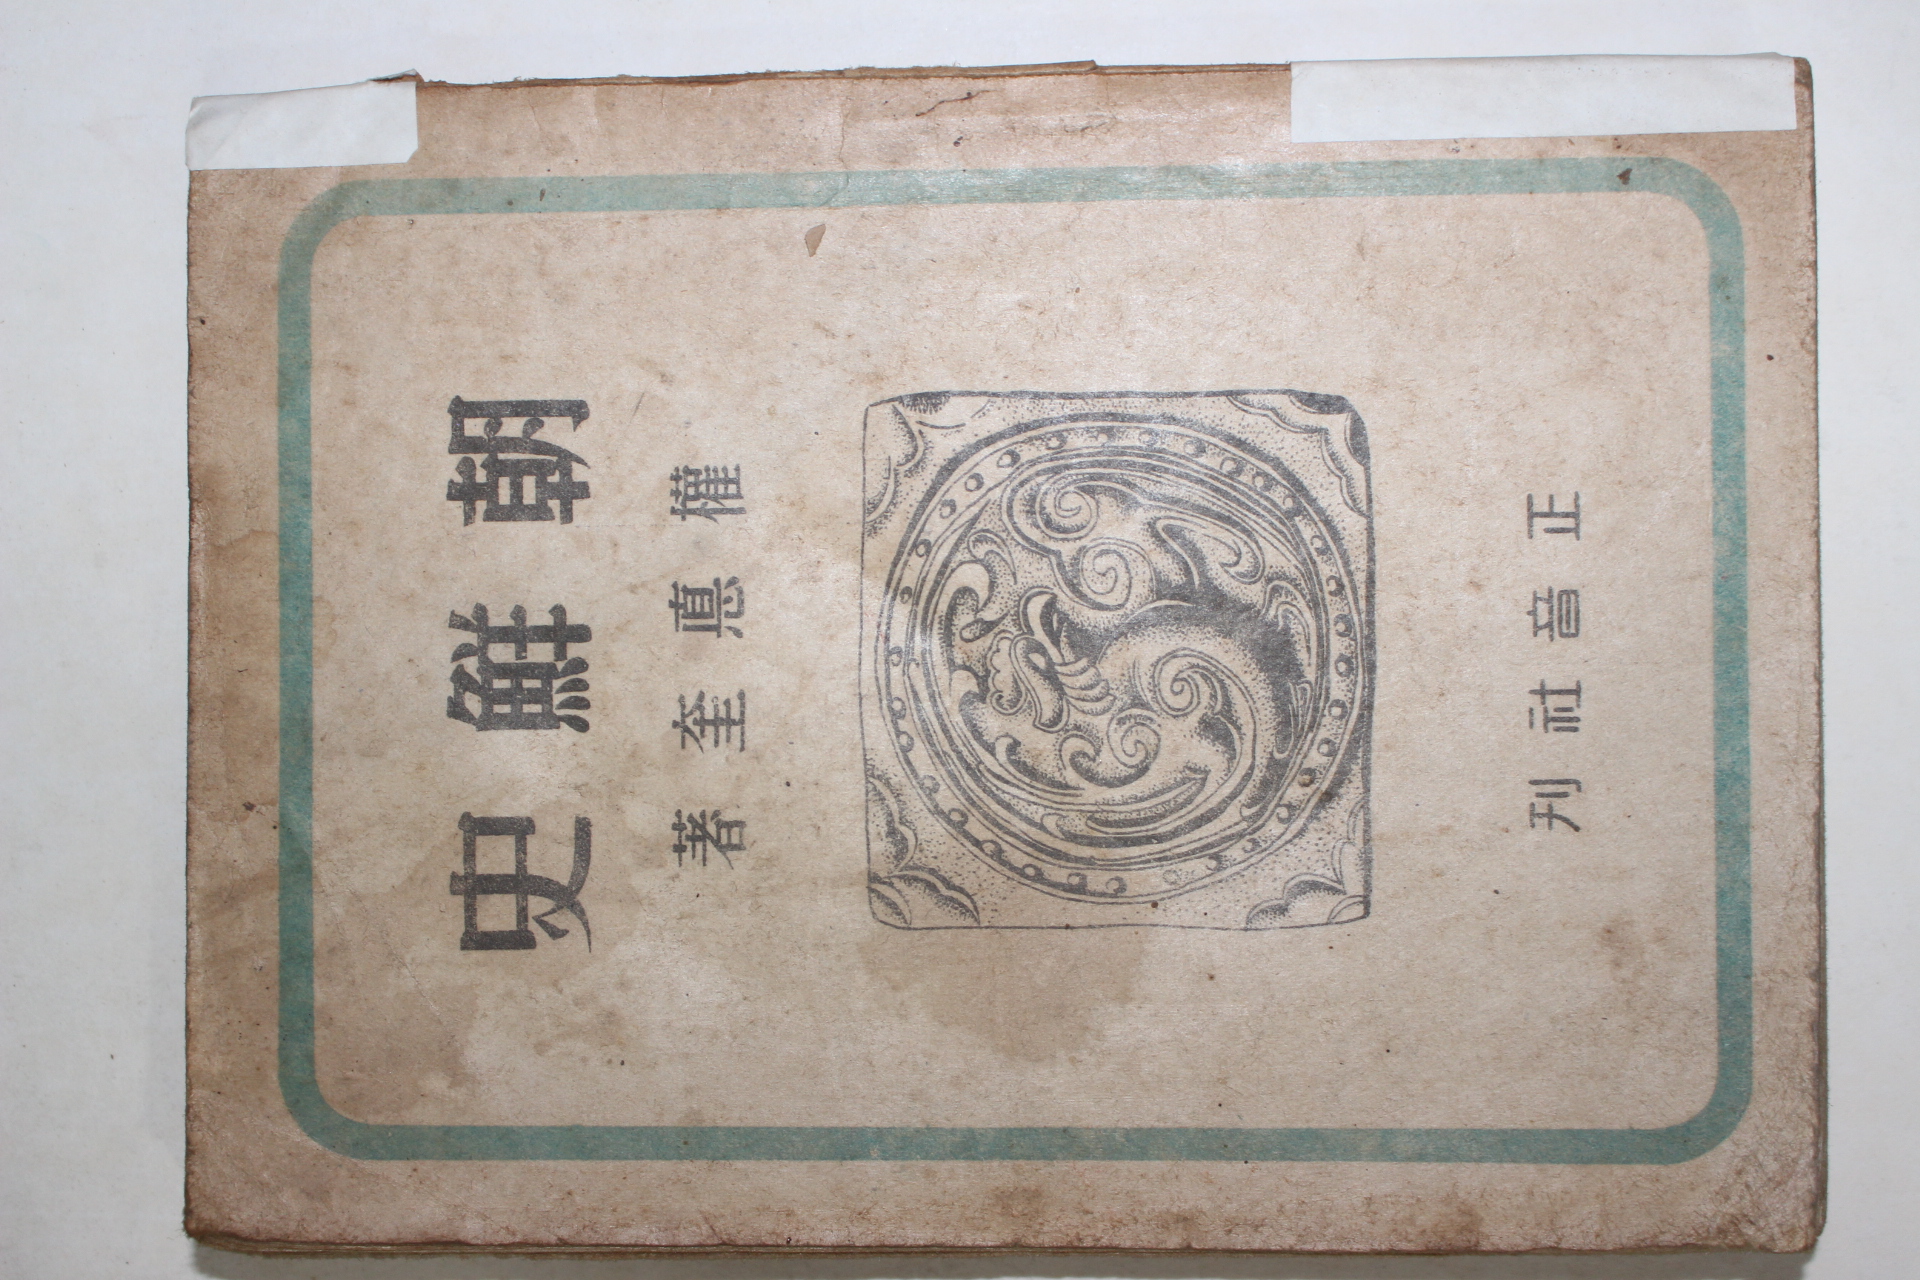 朝鮮史
權悳奎著
正音社刊